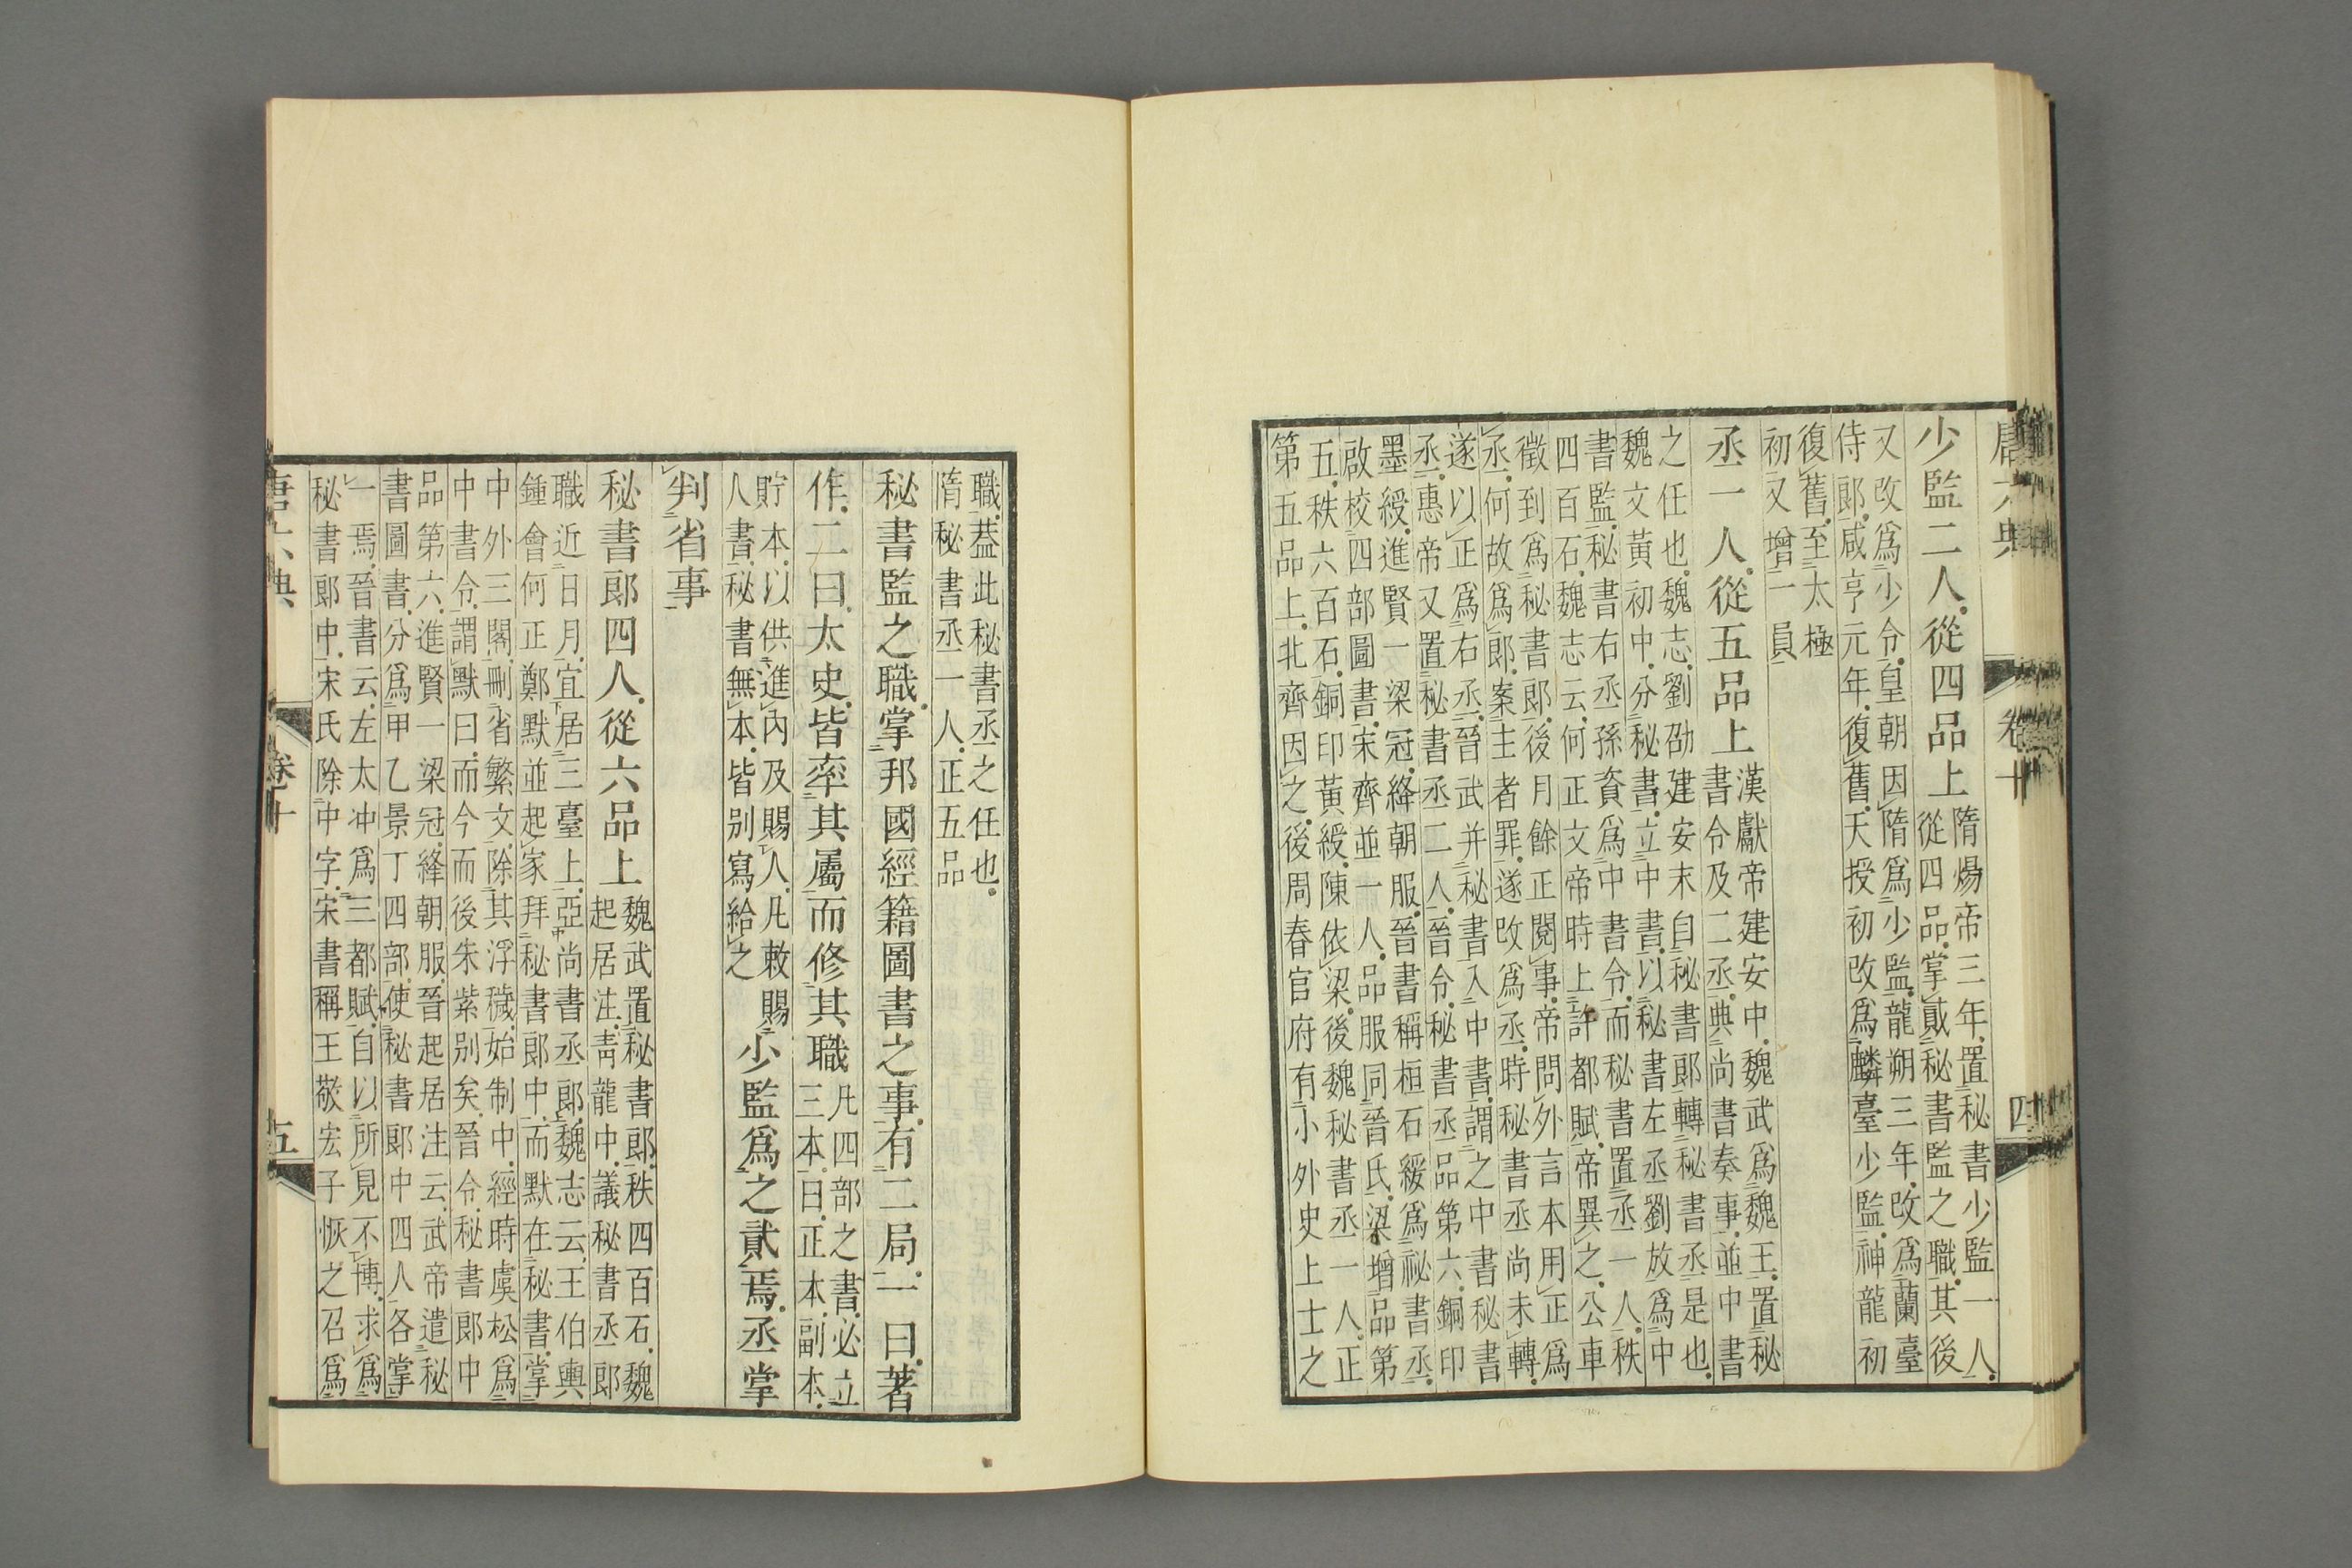 唐六典　卷十　四
少監二人從四品上隋煬帝三年置秘書少監一人
從四品掌貳秘書監之職其後
又改爲少令皇朝因隋爲少監龍朔三年改爲蘭臺
侍郎咸亨元年復舊天授初改爲麟臺少監神龍初
復舊至太極
初又增一員
丞一人從五品上漢獻帝建安中魏武爲魏王置秘
書令及二丞典尚書奏事並中書
之任也魏志劉劭建安末自秘書郎轉秘書丞是也
魏文黃初中分秘書立中書以秘書左丞劉放爲中
書監秘書右丞孫資爲中書令而秘書置丞一人秩
四百石魏志云何正文帝時上許都賦帝異之公車
徵到爲秘書郎後月餘正閱事帝問外言本用正爲
丞何故爲郎案主者罪遂改爲丞時秘書丞尚未轉
遂以正爲右丞晉武并秘書入中書謂之中書秘書
丞惠帝又置秘書丞二人晉令秘書丞品第六銅印
墨綬進賢一梁冠絳朝服晉書稱桓石綏爲祕書丞
啟校四部圖書宋齊並一人品服同晉氏梁增品第
五秩六百石銅印黃綬陳依梁後魏秘書丞一人正
第五品上北齊因之後周春官府有小外史上士之
職葢此秘書丞之任也
隋秘書丞一人正五品
秘書監之職掌邦國經籍圖書之事有二局一曰著
作二曰太史皆率其屬而修其職凡四部之書必立
三本曰正本副本
貯本以供進內及賜人凡敕賜
人書秘書無本皆別寫給之
少監爲之貳焉丞掌
判省事
秘書郎四人從六品上魏武置秘書郎秩四百石魏
起居注靑龍中議秘書丞郎
職近日月宜居三臺上亞尚書丞郎魏志云王伯輿
鍾會何正鄭默並起家拜秘書郎中而默在秘書掌
中外三閣刪省繁文除其浮穢始制中經時虞松爲
中書令謂默曰而今而後朱紫别矣晉令秘書郎中
品第六進賢一梁冠絳朝服晉起居注云武帝遣秘
書圖書分爲甲乙景丁四部使秘書郎中四人各掌
一焉晉書云左太冲爲三都賦自以所見不博求爲
秘書郎中宋氏除中字宋書稱王敬宏子恢之召爲
唐六典　卷十　五